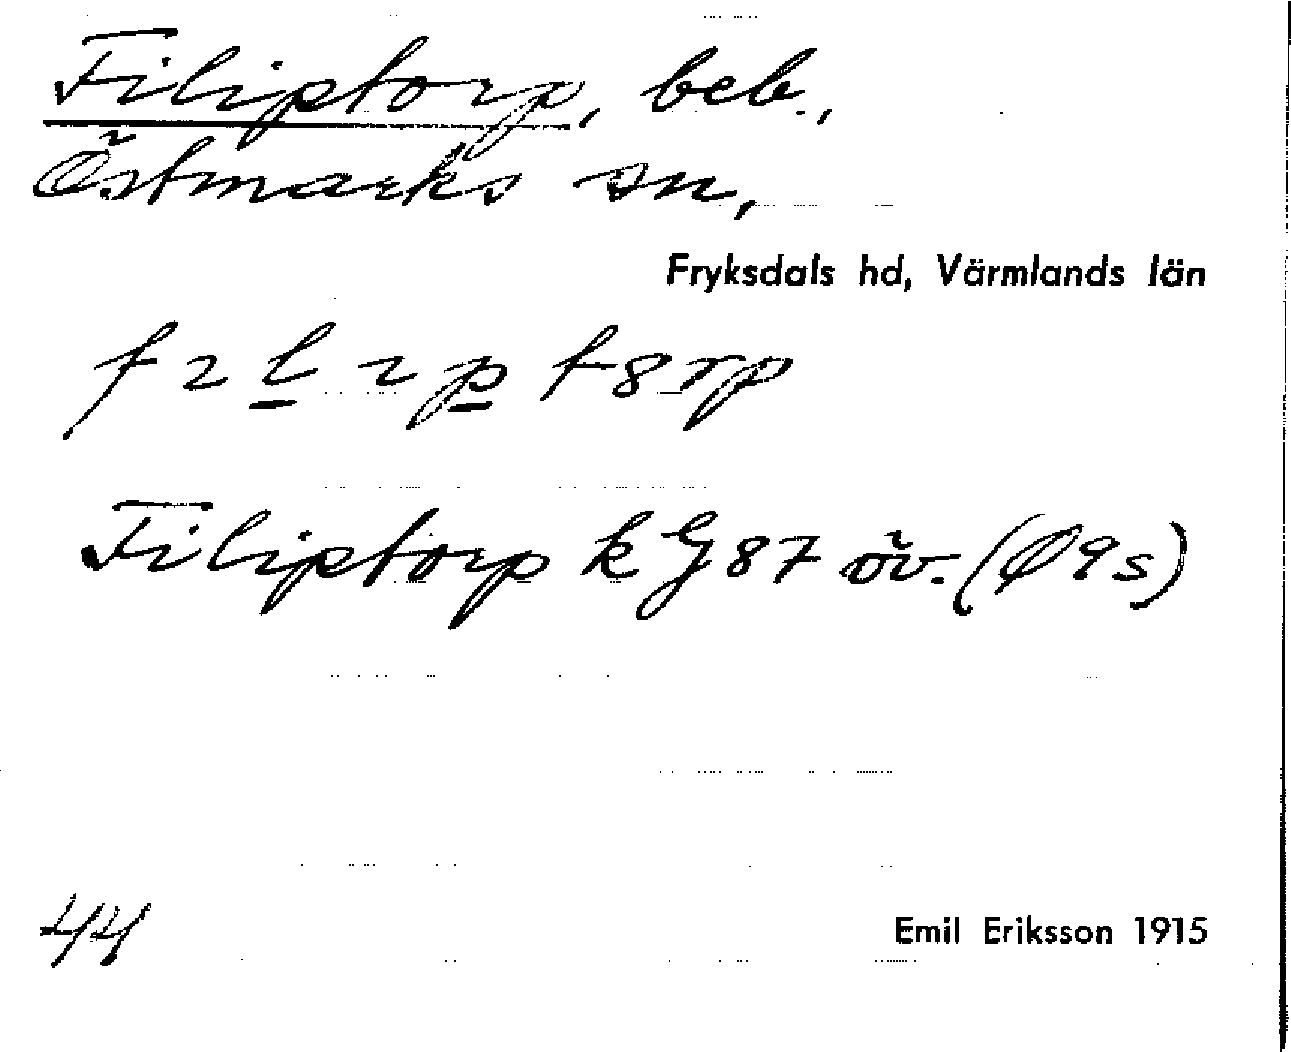 Filiptorp, beb.,
Östmarks sn,
Fryksdals hd, Värmlands län
Filiptorp k G 87 öv. (Ø 9s)
44
Emil Eriksson 1915